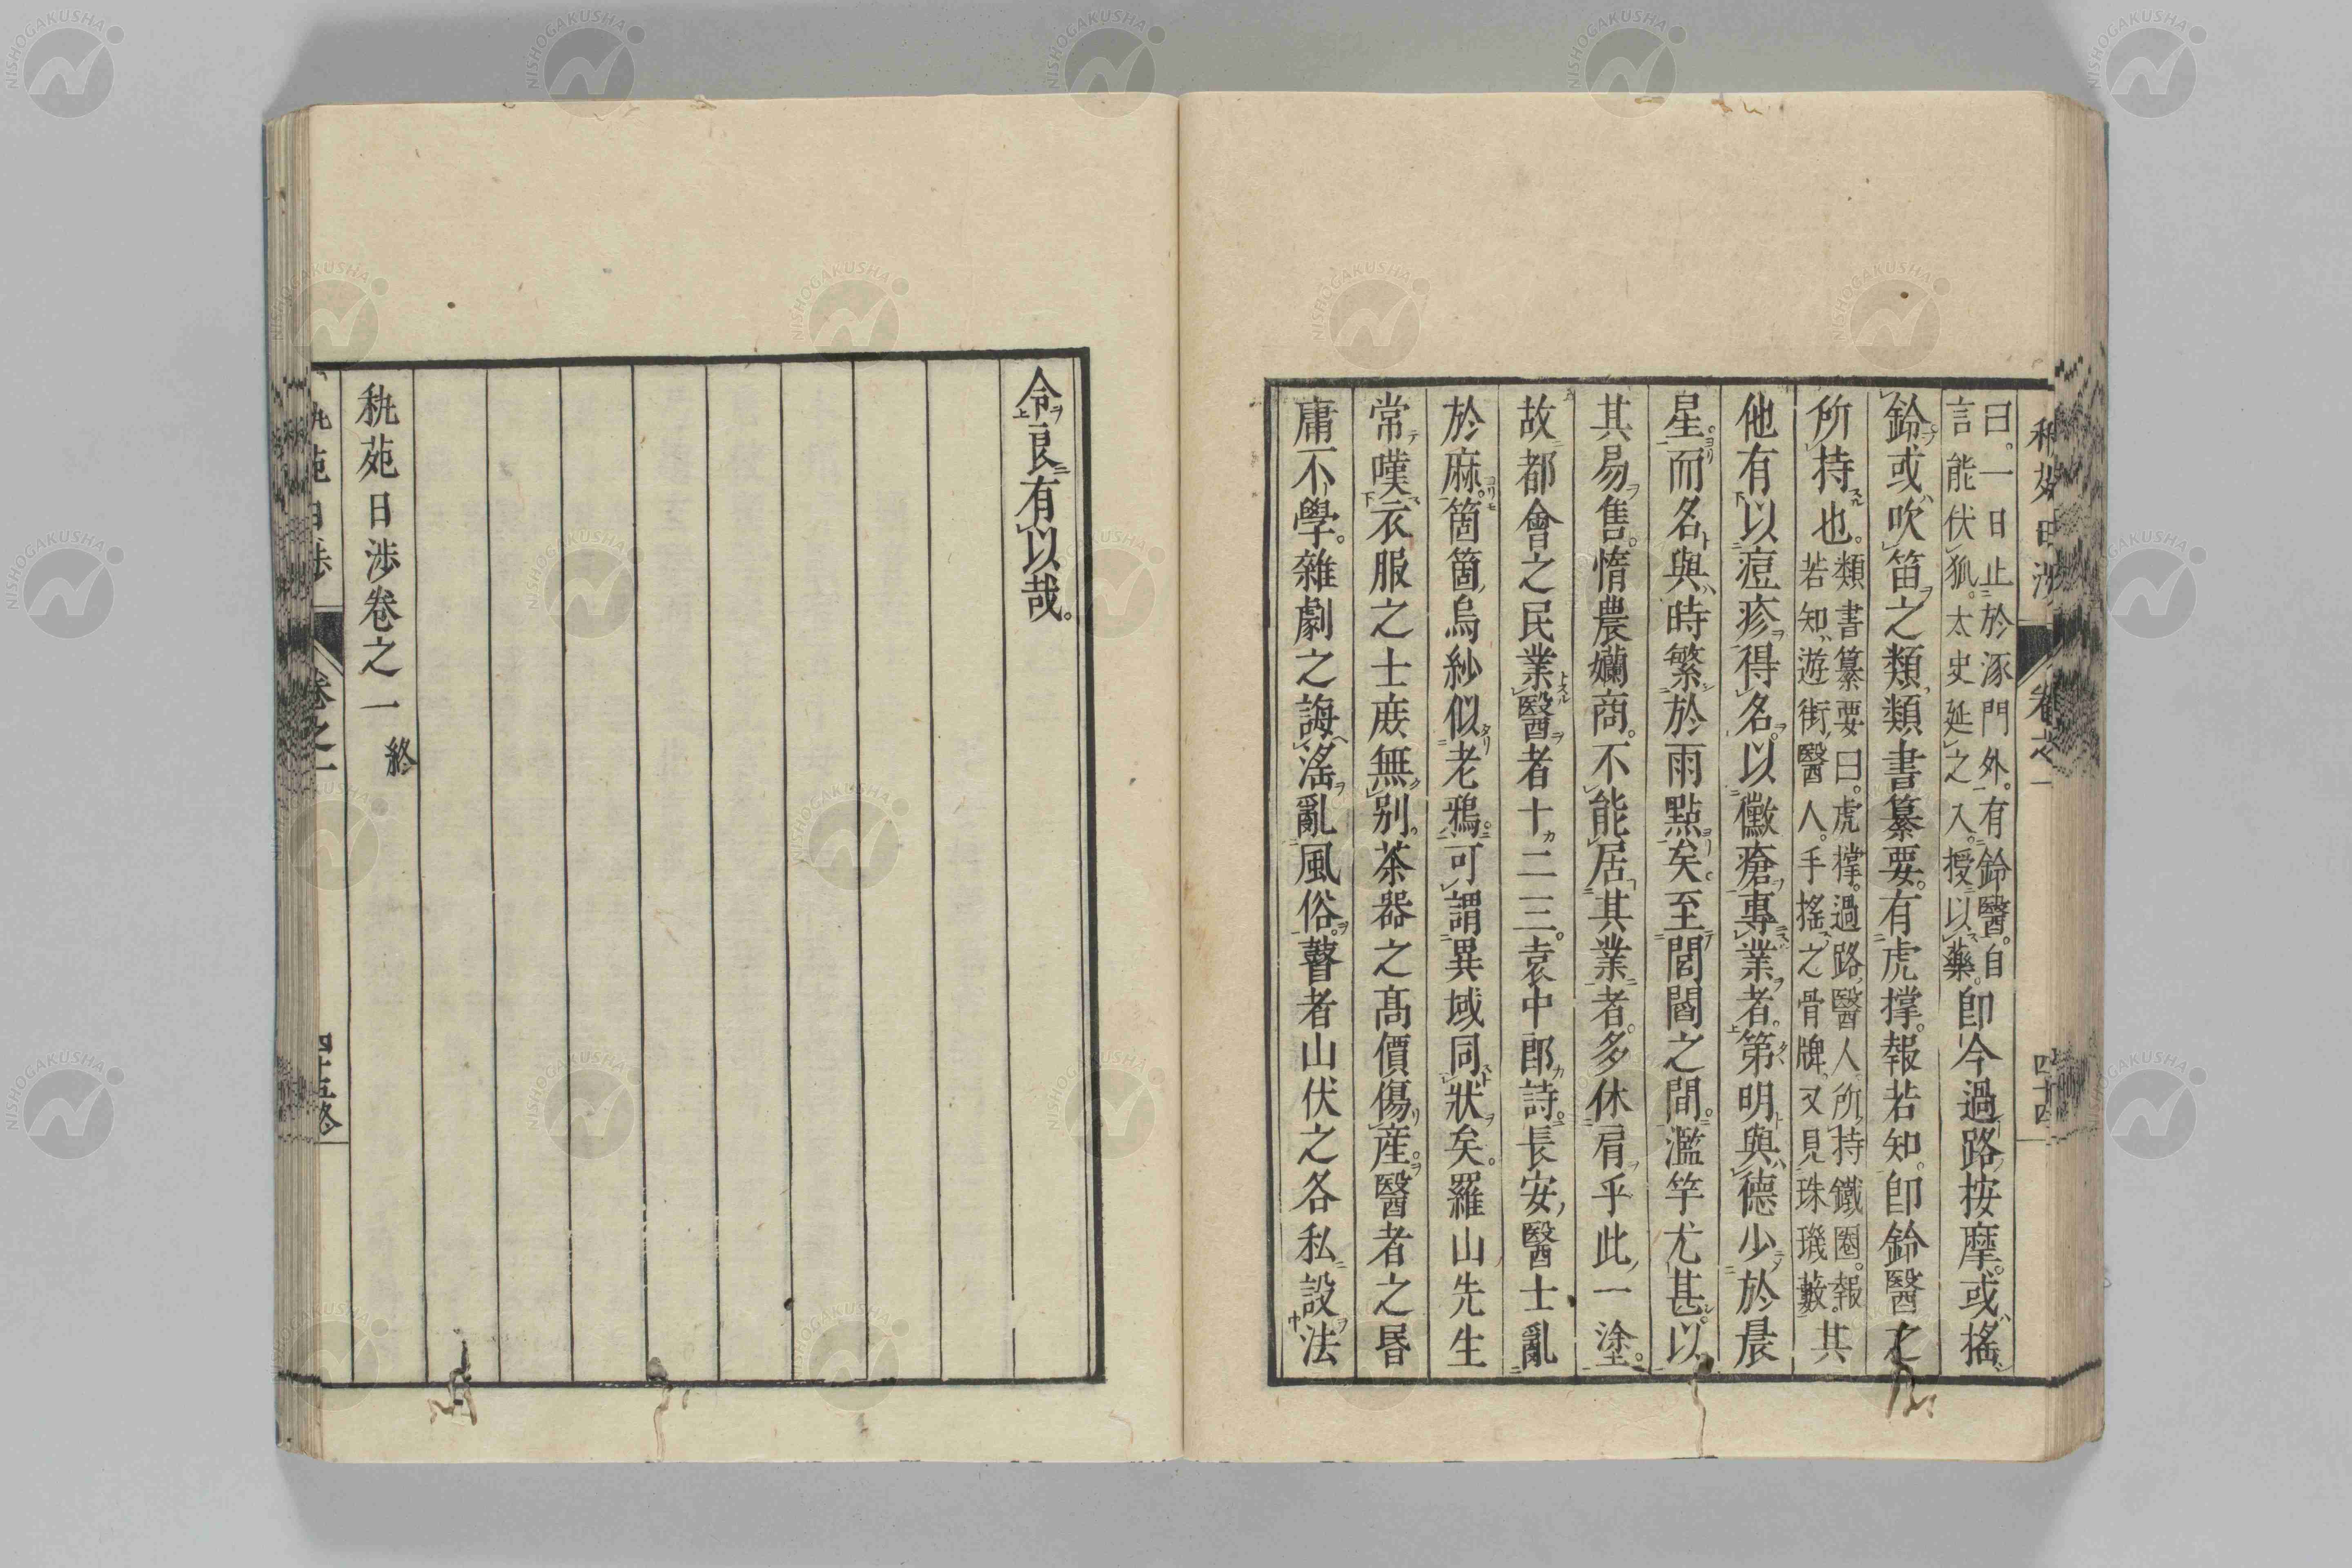 曰。一日止於涿門外。有鈴醫。自
言能伏狐。太史延之入。授以藥。
卽今過路按摩。或搖
鈴或吹笛之類。類書纂要。有虎撑。報若知。卽鈴醫之
所持也。
類書纂要曰。虎撑。過路醫人所持鐵圈。報
若知。遊街醫人。手搖之骨牌。又見珠璣藪。
其
他有以痘疹得名。以黴瘡專業者。第明與德少於晨
星。而名與時繁於雨點矣。至閭閻之間。濫竽尤甚。以
其易售。惰農嬾商。不能居其業者。多休肩乎此一塗。
故都會之民業醫者十二三。袁中郎詩。長安醫士亂
於麻。箇箇烏紗似老鴉。可謂異域同狀矣。羅山先生
常嘆衣服之士庻無別。茶器之高價傷産。醫者之昏
庸不學。雜劇之誨滛亂風俗。瞽者山伏之各私設法
令。良有以哉。
秇苑日渉卷之一 終
卷之一
四十五終
卷之一
四十四